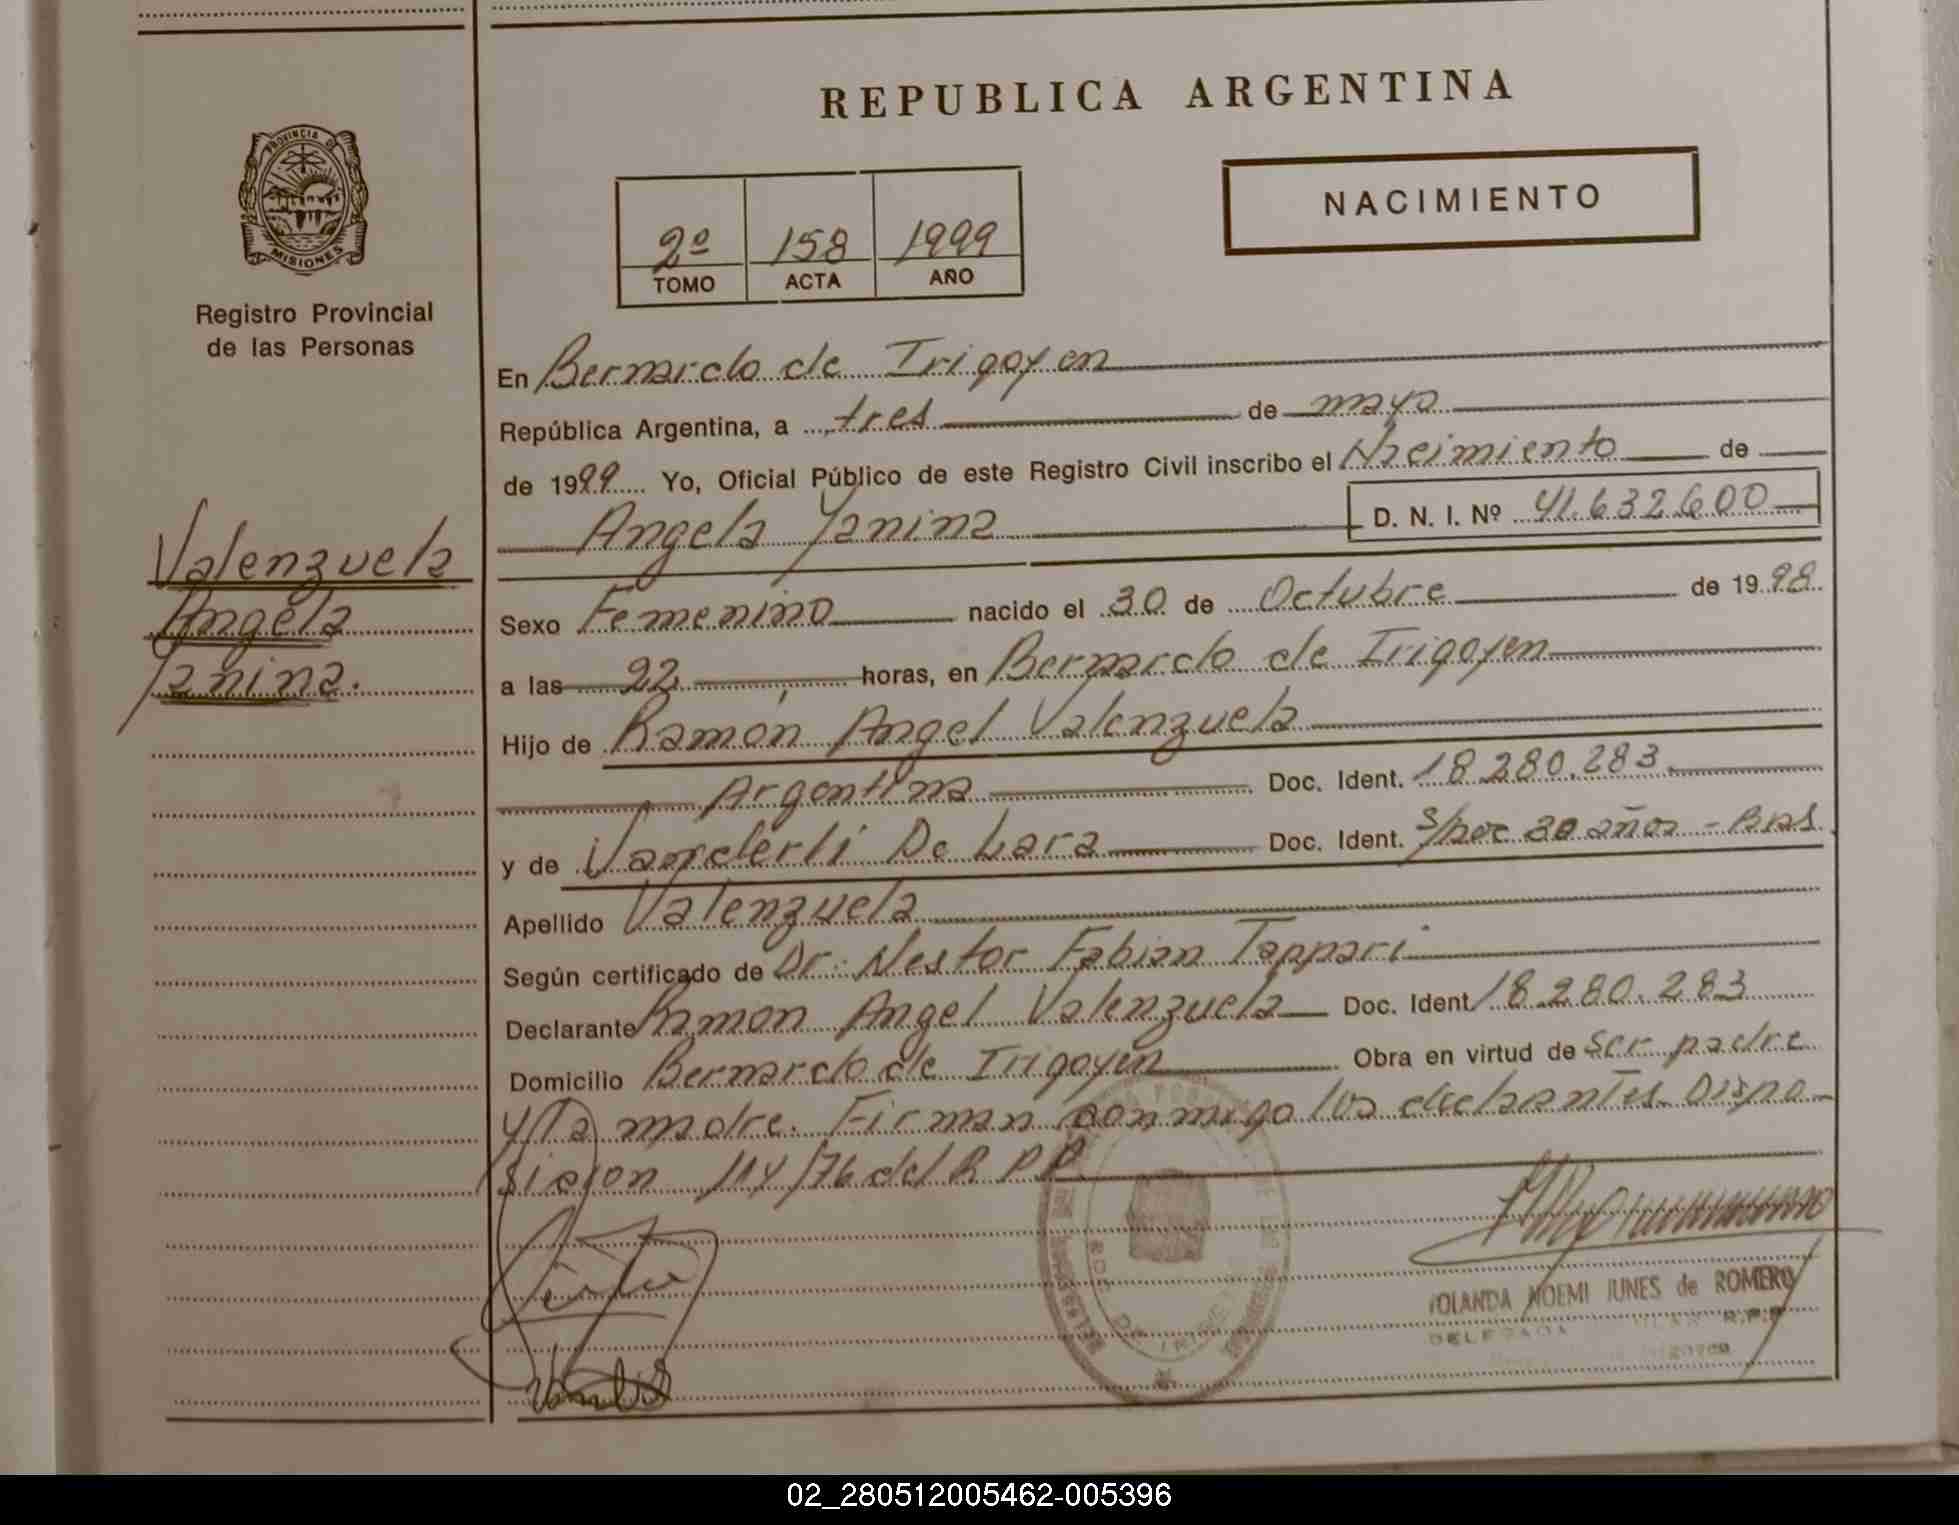 REPUBLICA ARGENTINA
PROVINCIA DE
MISIONES
Registro Provincial
de las Personas
2º 158 1999
TOMO ACTA AÑO
NACIMIENTO
En Bernardo de Irigoyen
República Argentina, a tres de mayo
de 1999 Yo, Oficial Público de este Registro Civil inscribo el Nacimiento de
Angela Yanina D. N. I. Nº 41.632.600
Valenzuela
Angela
Yanina.
Sexo Femenino nacido el 30 de Octubre de 1998
a las 22 horas, en Bernardo de Irigoyen
Hijo de Ramón Angel Valenzuela
Argentina Doc. Ident. 18.280.283.
y de Vanderli De Lara Doc. Ident. S/Doc 30 años - Bras.
Apellido Valenzuela
Según certificado de Dr. Nestor Fabian Tappari
Declarante Ramon Angel Valenzuela Doc. Ident 18.280.283
Domicilio Bernardo de Irigoyen Obra en virtud de Ser padre
y la madre. Firman conmigo los declarantes. Dispo-
sicion 114/76 del R P P
YOLANDA NOEMI JUNES de ROMERO
DELEGADA R.P.P.
02_280512005462-005396